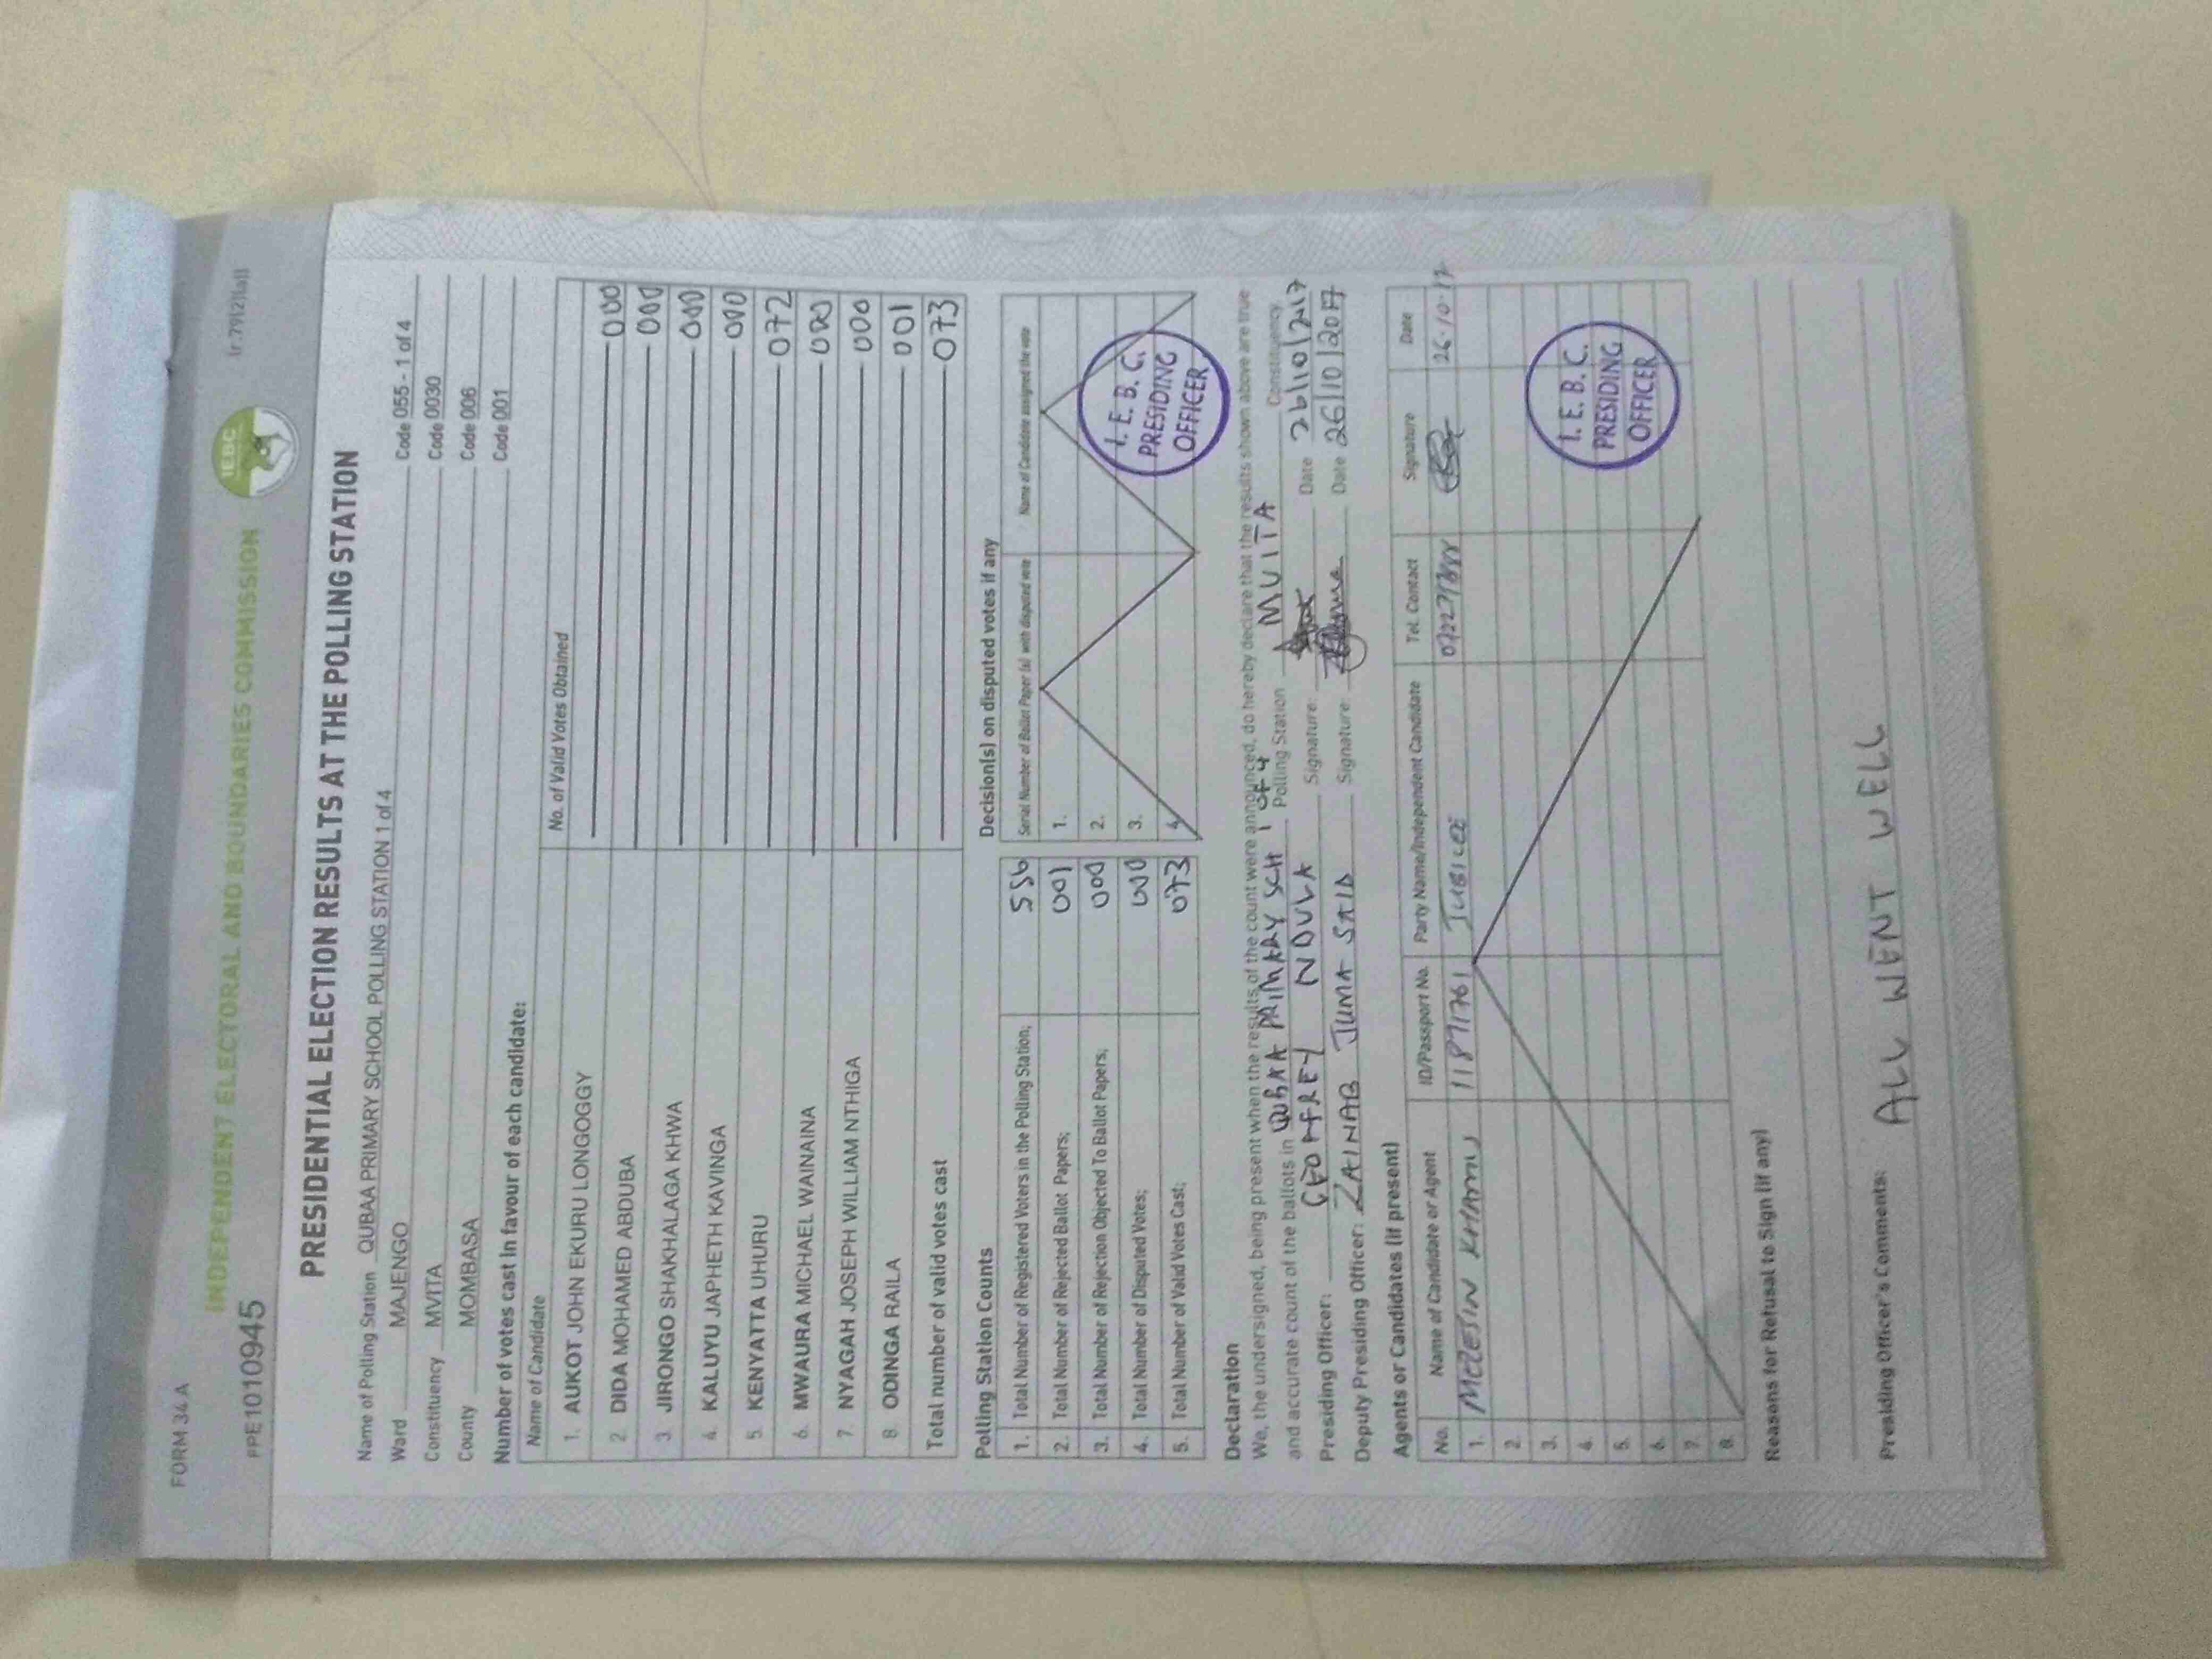 FORM 34A (r.79(2)(a))
INDEPENDENT ELECTORAL AND BOUNDARIES COMMISSION
IEBC
PPE1010945
PRESIDENTIAL ELECTION RESULTS AT THE POLLING STATION
Name of Polling Station QUBAA PRIMARY SCHOOL POLLING STATION 1 of 4
Ward MAJENGO Code 055 - 1 of 4
Constituency MVITA Code 0030
County MOMBASA Code 006
Code 001
Number of votes cast in favour of each candidate:
Name of Candidate No. of Valid Votes Obtained
1. AUKOT JOHN EKURU LONGOGGY 000
2 DIDA MOHAMED ABDUBA 000
3 JIRONGO SHAKHALAGA KHWA 000
4. KALUYU JAPHETH KAVINGA 000
5. KENYATTA UHURU 072
6. MWAURA MICHAEL WAINAINA 000
7. NYAGAH JOSEPH WILLIAM NTHIGA 000
8 ODINGA RAILA 001
Total number of valid votes cast 073
Polling Station Counts
1. Total Number of Registered Voters in the Polling Station; 556
2. Total Number of Rejected Ballot Papers; 001
3. Total Number of Rejection Objected To Ballot Papers; 000
4. Total Number of Disputed Votes; 000
5. Total Number of Valid Votes Cast; 073
Decision(s) on disputed votes if any
Serial Number of Ballot Paper (s) with disputed vote Name of Candidate assigned the vote
1.
2.
3.
4.
I. E. B. C.
PRESIDING
OFFICER
Declaration
We, the undersigned, being present when the results of the count were announced, do hereby declare that the results shown above are true
and accurate count of the ballots in QUBAA PRIMARY SCH 1 OF 4 Polling Station MVITA Constituency
Presiding Officer: GEOFFREY NDULA Signature: Date 26/10/2017
Deputy Presiding Officer: ZAINAB JUMA SAID Signature: Date 26/10/2017
Agents or Candidates (if present)
No. Name of Candidate or Agent ID/Passport No. Party Name/Independent Candidate Tel. Contact Signature Date
1. KHAMU 11871761 JUBILEE 26.10.17
2.
3.
4.
5.
6.
7.
8.
I. E. B. C.
PRESIDING
OFFICER
Reasons for Refusal to Sign (if any)
Presiding Officer's Comments: ALL WENT WELL